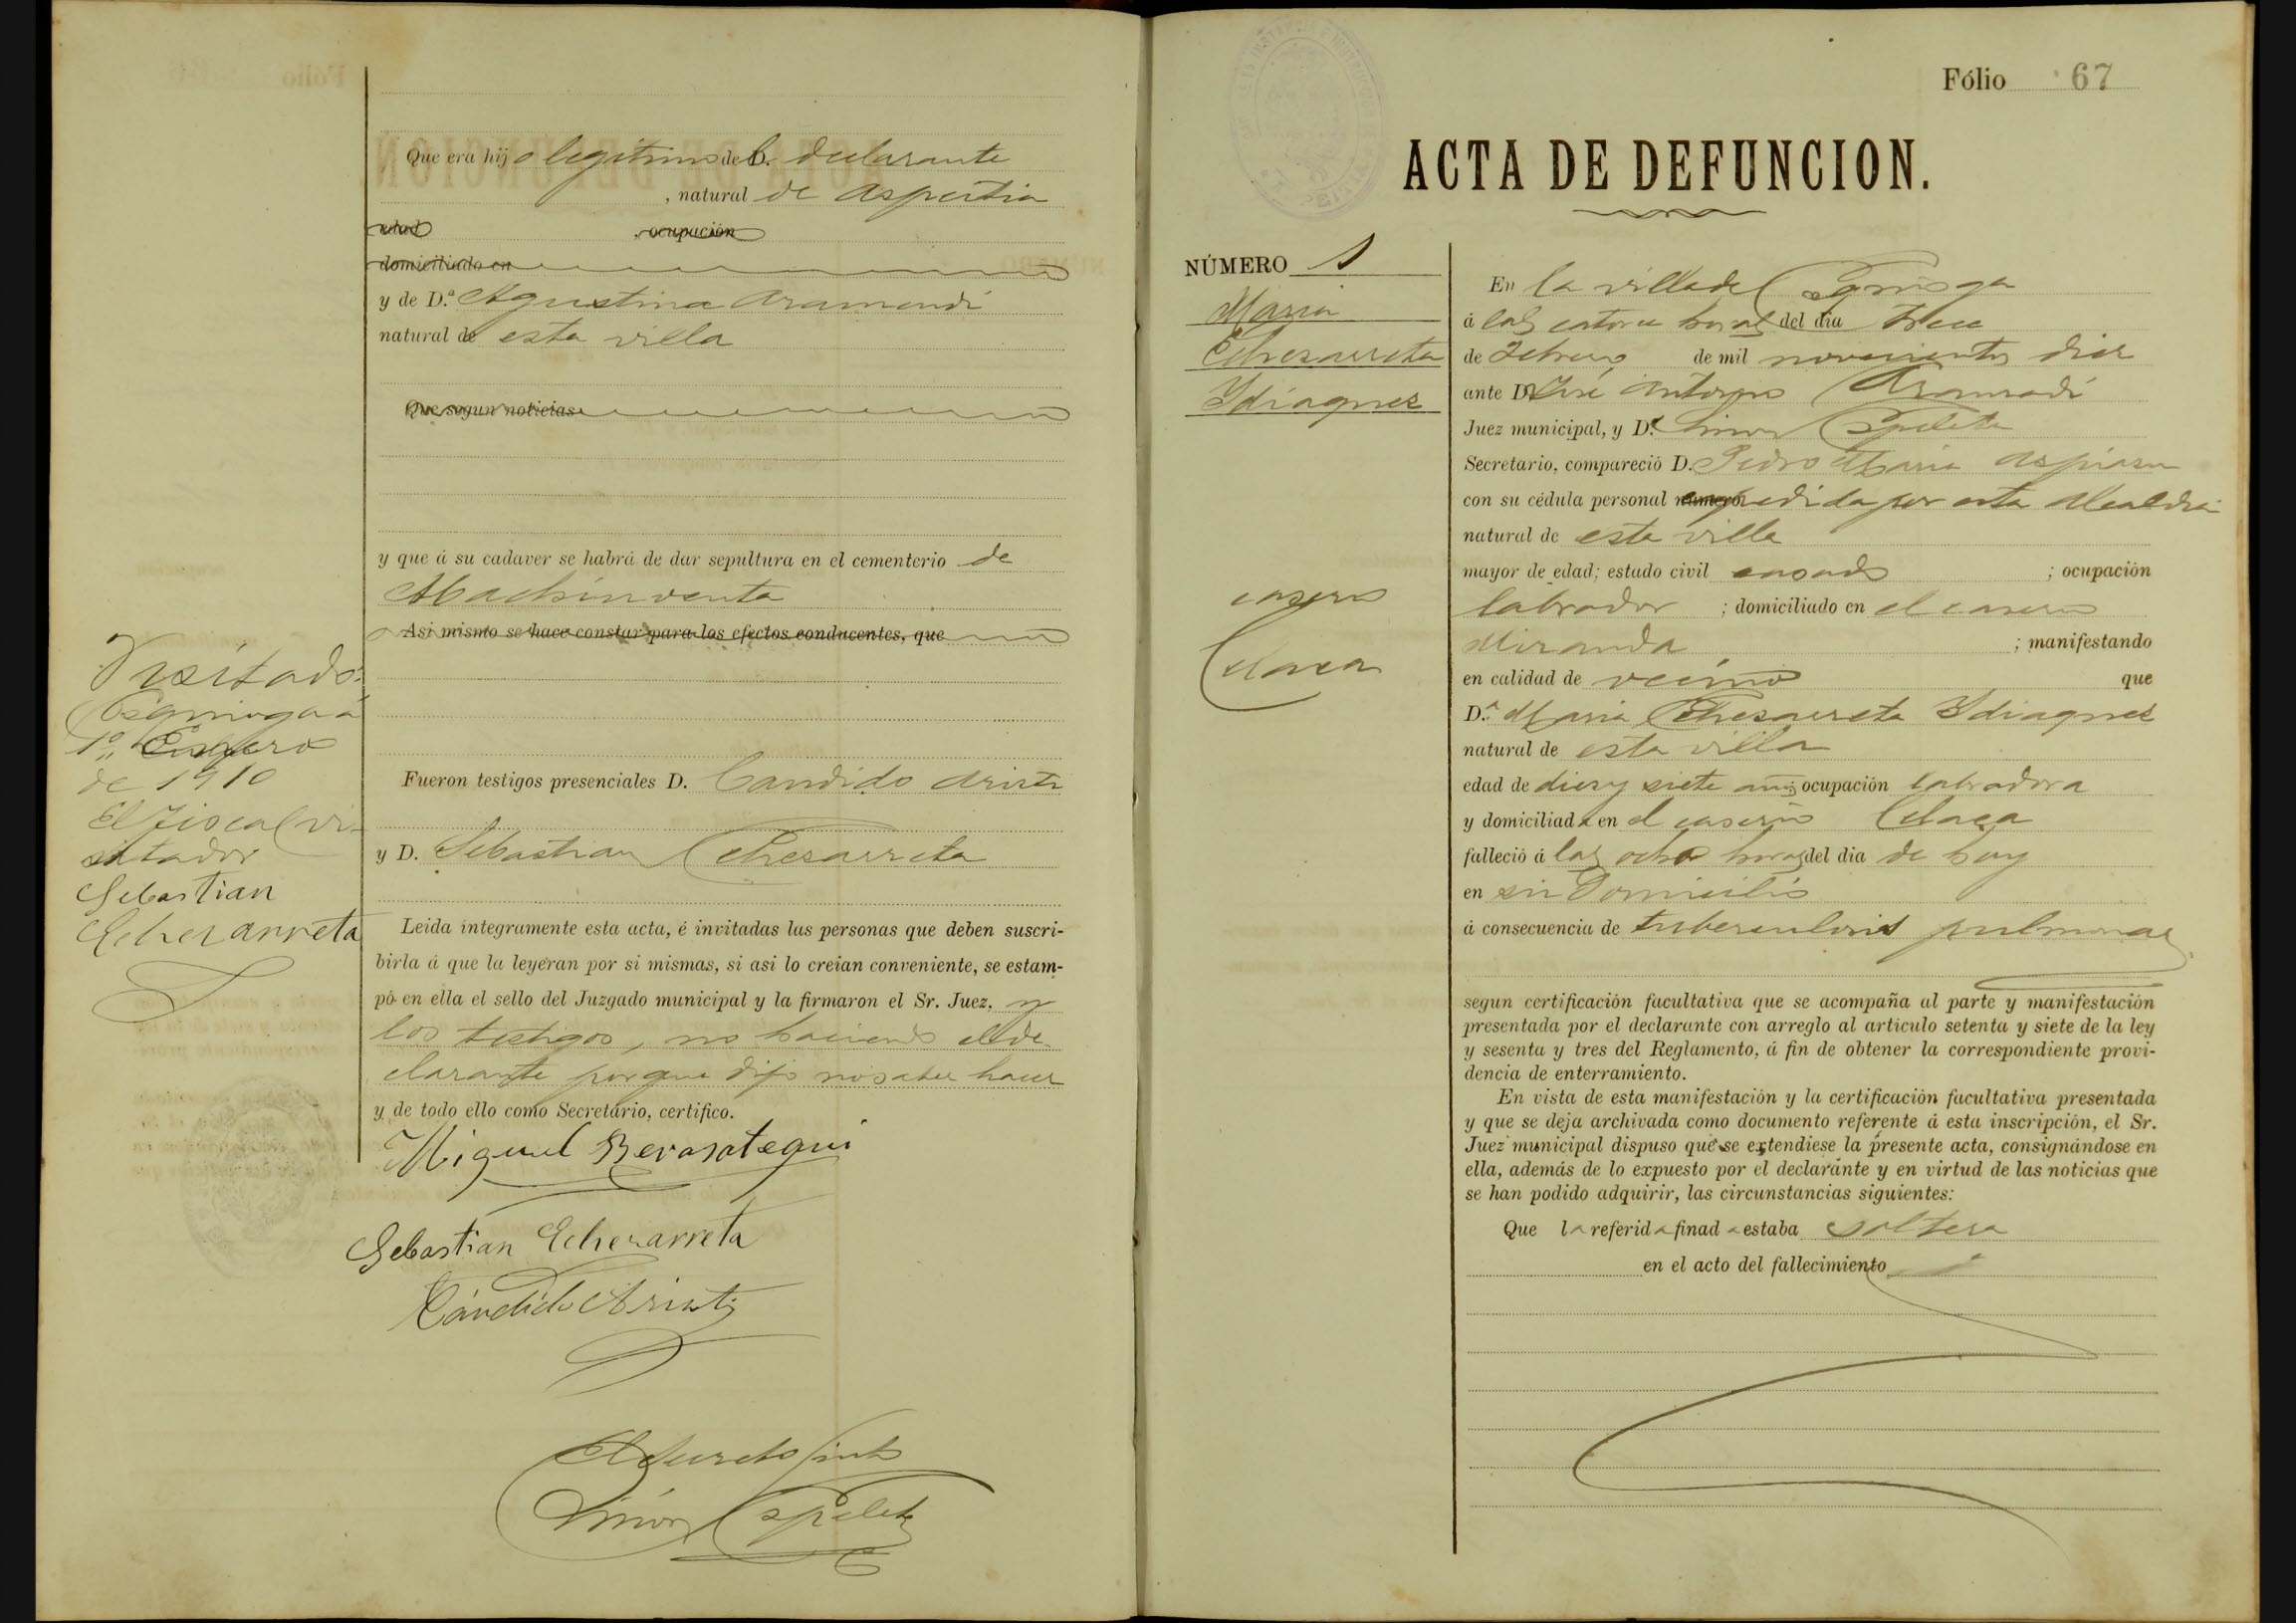 Que era hijo legítimo del declarante
, natural de Aspeitia
edad , ocupación
domiciliado en
y de D.ª Agustina Aramendi
natural de esta villa
Que segun noticias
y que á su cadaver se habrá de dar sepultura en el cementerio de
Machinventa
Asi mismo se hace constar para los efectos conducentes, que
Visitado
Esquioga á
1º Enero
de 1910
El Fiscal vi-
sitador
Sebastian
Echezarreta
Fueron testigos presenciales D. Candido Aristi
y D. Sebastian Echezarreta
Leida integramente esta acta, é invitadas las personas que deben suscri-
birla á que la leyeran por si mismas, si asi lo creian conveniente, se estam-
pó en ella el sello del Juzgado municipal y la firmaron el Sr. Juez, y
los testigos, no haciendo el de-
clarante porque dijo no saber hacer
y de todo ello como Secretario, certifico.
Miguel Berasategui
Sebastian Echezarreta
Cándido Aristi
El Secreto
Simon Espeleta
Fólio 67
ACTA DE DEFUNCION.
NÚMERO 1
Maria
Echezarreta
Ydiaquez
caserio
Elaca
En la villa de Esquioga
á las catorce horas del dia trece
de Febrero de mil novecientos diez
ante D. José Antonio
Juez municipal, y D. Simon Espeleta
Secretario, compareció D. Pedro Maria Aspiazu
con su cédula personal expedida por esta Alcaldia
natural de esta villa
mayor de edad; estado civil casado ; ocupación
labrador ; domiciliado en el caserio
Miranda ; manifestando
en calidad de vecino que
D.ª Maria Echezarreta Ydiaquez
natural de esta villa
edad de diez y siete años ocupación labradora
y domiciliada en el caserio Elaca
falleció á las ocho horas del dia de hoy
en su domicilio
á consecuencia de tuberculosis pulmonar
segun certificación facultativa que se acompaña al parte y manifestación
presentada por el declarante con arreglo al articulo setenta y siete de la ley
y sesenta y tres del Reglamento, á fin de obtener la correspondiente provi-
dencia de enterramiento.
En vista de esta manifestación y la certificación facultativa presentada
y que se deja archivada como documento referente á esta inscripción, el Sr.
Juez municipal dispuso que se extendiese la presente acta, consignándose en
ella, además de lo expuesto por el declarante y en virtud de las noticias que
se han podido adquirir, las circunstancias siguientes:
Que la referida finada estaba soltera
en el acto del fallecimiento